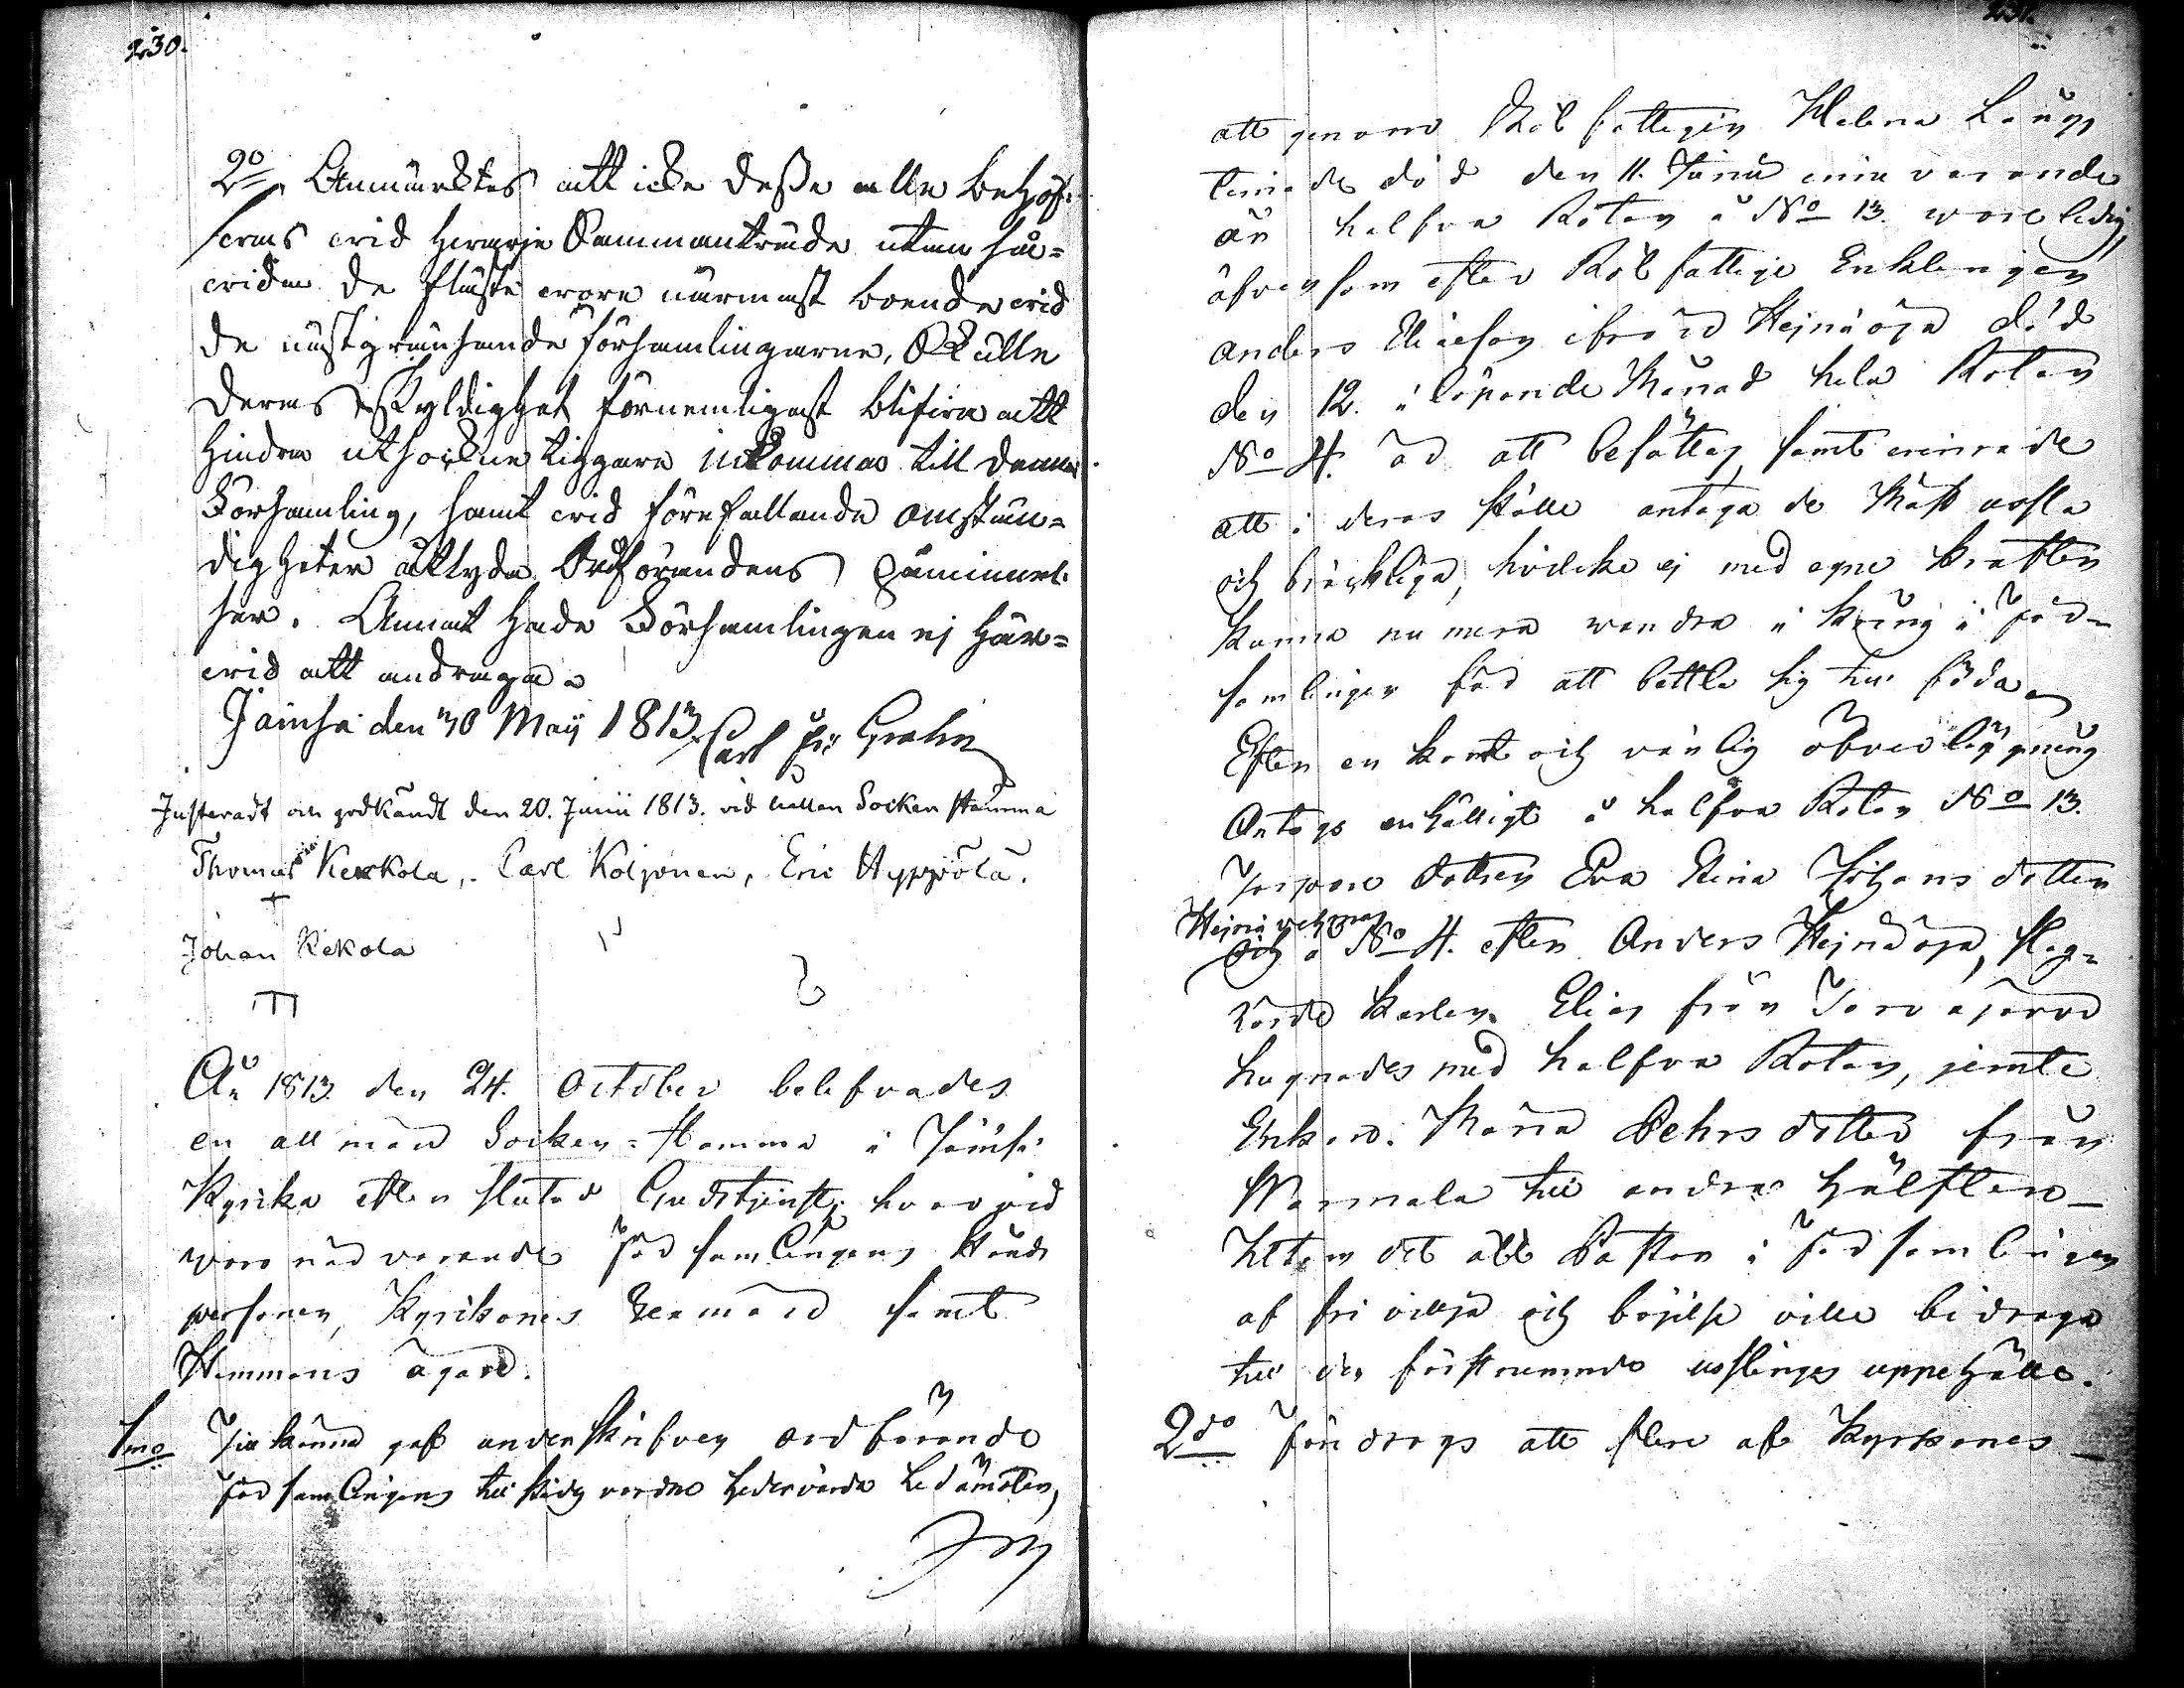 230.
2o Anmärktes att icke desse alla behöf-
feras vid hvarje Sammanträde utan så-
vida de fläste vore närmast boende vid
de nästgränsande församlingarne, Skulle
deras Skyldighet förnemligast blifva att
hindra utsockne tiggare inkomma till denna
Församling, samt vid förefallande omstän-
digheter åtlyda Ordförandens påminnel-
ser. Annat hade Församlingen ej här-
vid att andraga.
Jämsä den 30 Maij 1813. Carl
Justeradt och godkändt den 20. Junii 1813. vid hållen Socken stämma
Thomas Kerkola, Carl Koljonen, Eric Hyppölä.
Johan Kekola
År 1813. den 24. October belefvades
en allmän Socken-stämma i Jämsä
Kyrka efter slutad Gudstjenst, hvarvid
voro närvarande Församlingens Stånds
personer, Kyrkones Sexmän samt
Hemmans ägare.
1mo Tillkänna gaf underskrifven ordförande
Församlingens till städes vordne hedervärde Ledamöter,
231.
att genom Rot fattigen Helena
död den 11. Junii innevarande
år halfva Roten å No 13. vore ledig,
äfvensom efter Rot fattige Enklingen
Anders Eliæson ifrån Heinäoja död
den 12. i löpande Månad hela Roten
No 4. är att besättas, samt
att i deras ställe antaga de mäst usla
och bräckliga, hvilcka ej med egne krafter
kunna nu mera vandra i kring i För-
samlingen för att bettla sig till föda.
Efter en kort och vänlig öfverläggning
Antogs enhälligt å halfva Roten No 13.
dottren Eva Stina Johans dotter
och å No 4. efter Anders Heinäoja, slag-
rörde karlen Elias från
hugnades med halfva Roten, jemte
Enkan Maria Pehrs dotter från
till andra hälften
Utom det att i Församlingen
af fri vilja och böjelse ville bidraga
till den förstnemnde usslinges uppehälle.
2do Fördrogs att flere af Kyrkones